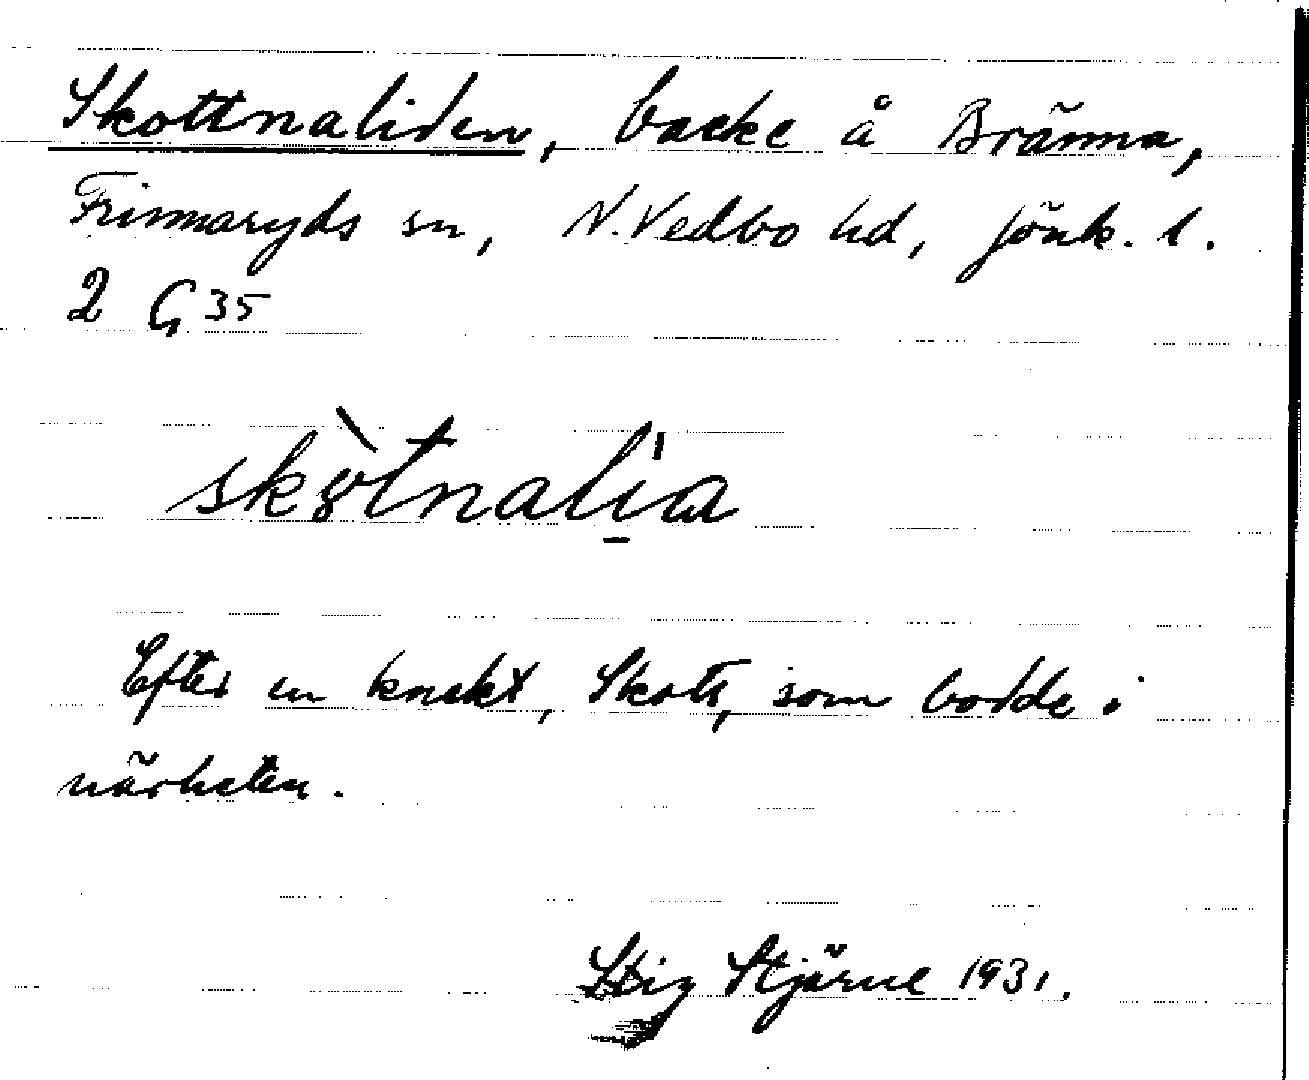 Skottnaliden, backe å Bränna,
Frinnaryds sn, N. Vedbo hd, Jönk. l.
2 G 35
skòtnali̠'a
Efter en knekt, Skott, som bodde i
närheten.
Stig Stjärne 1931.